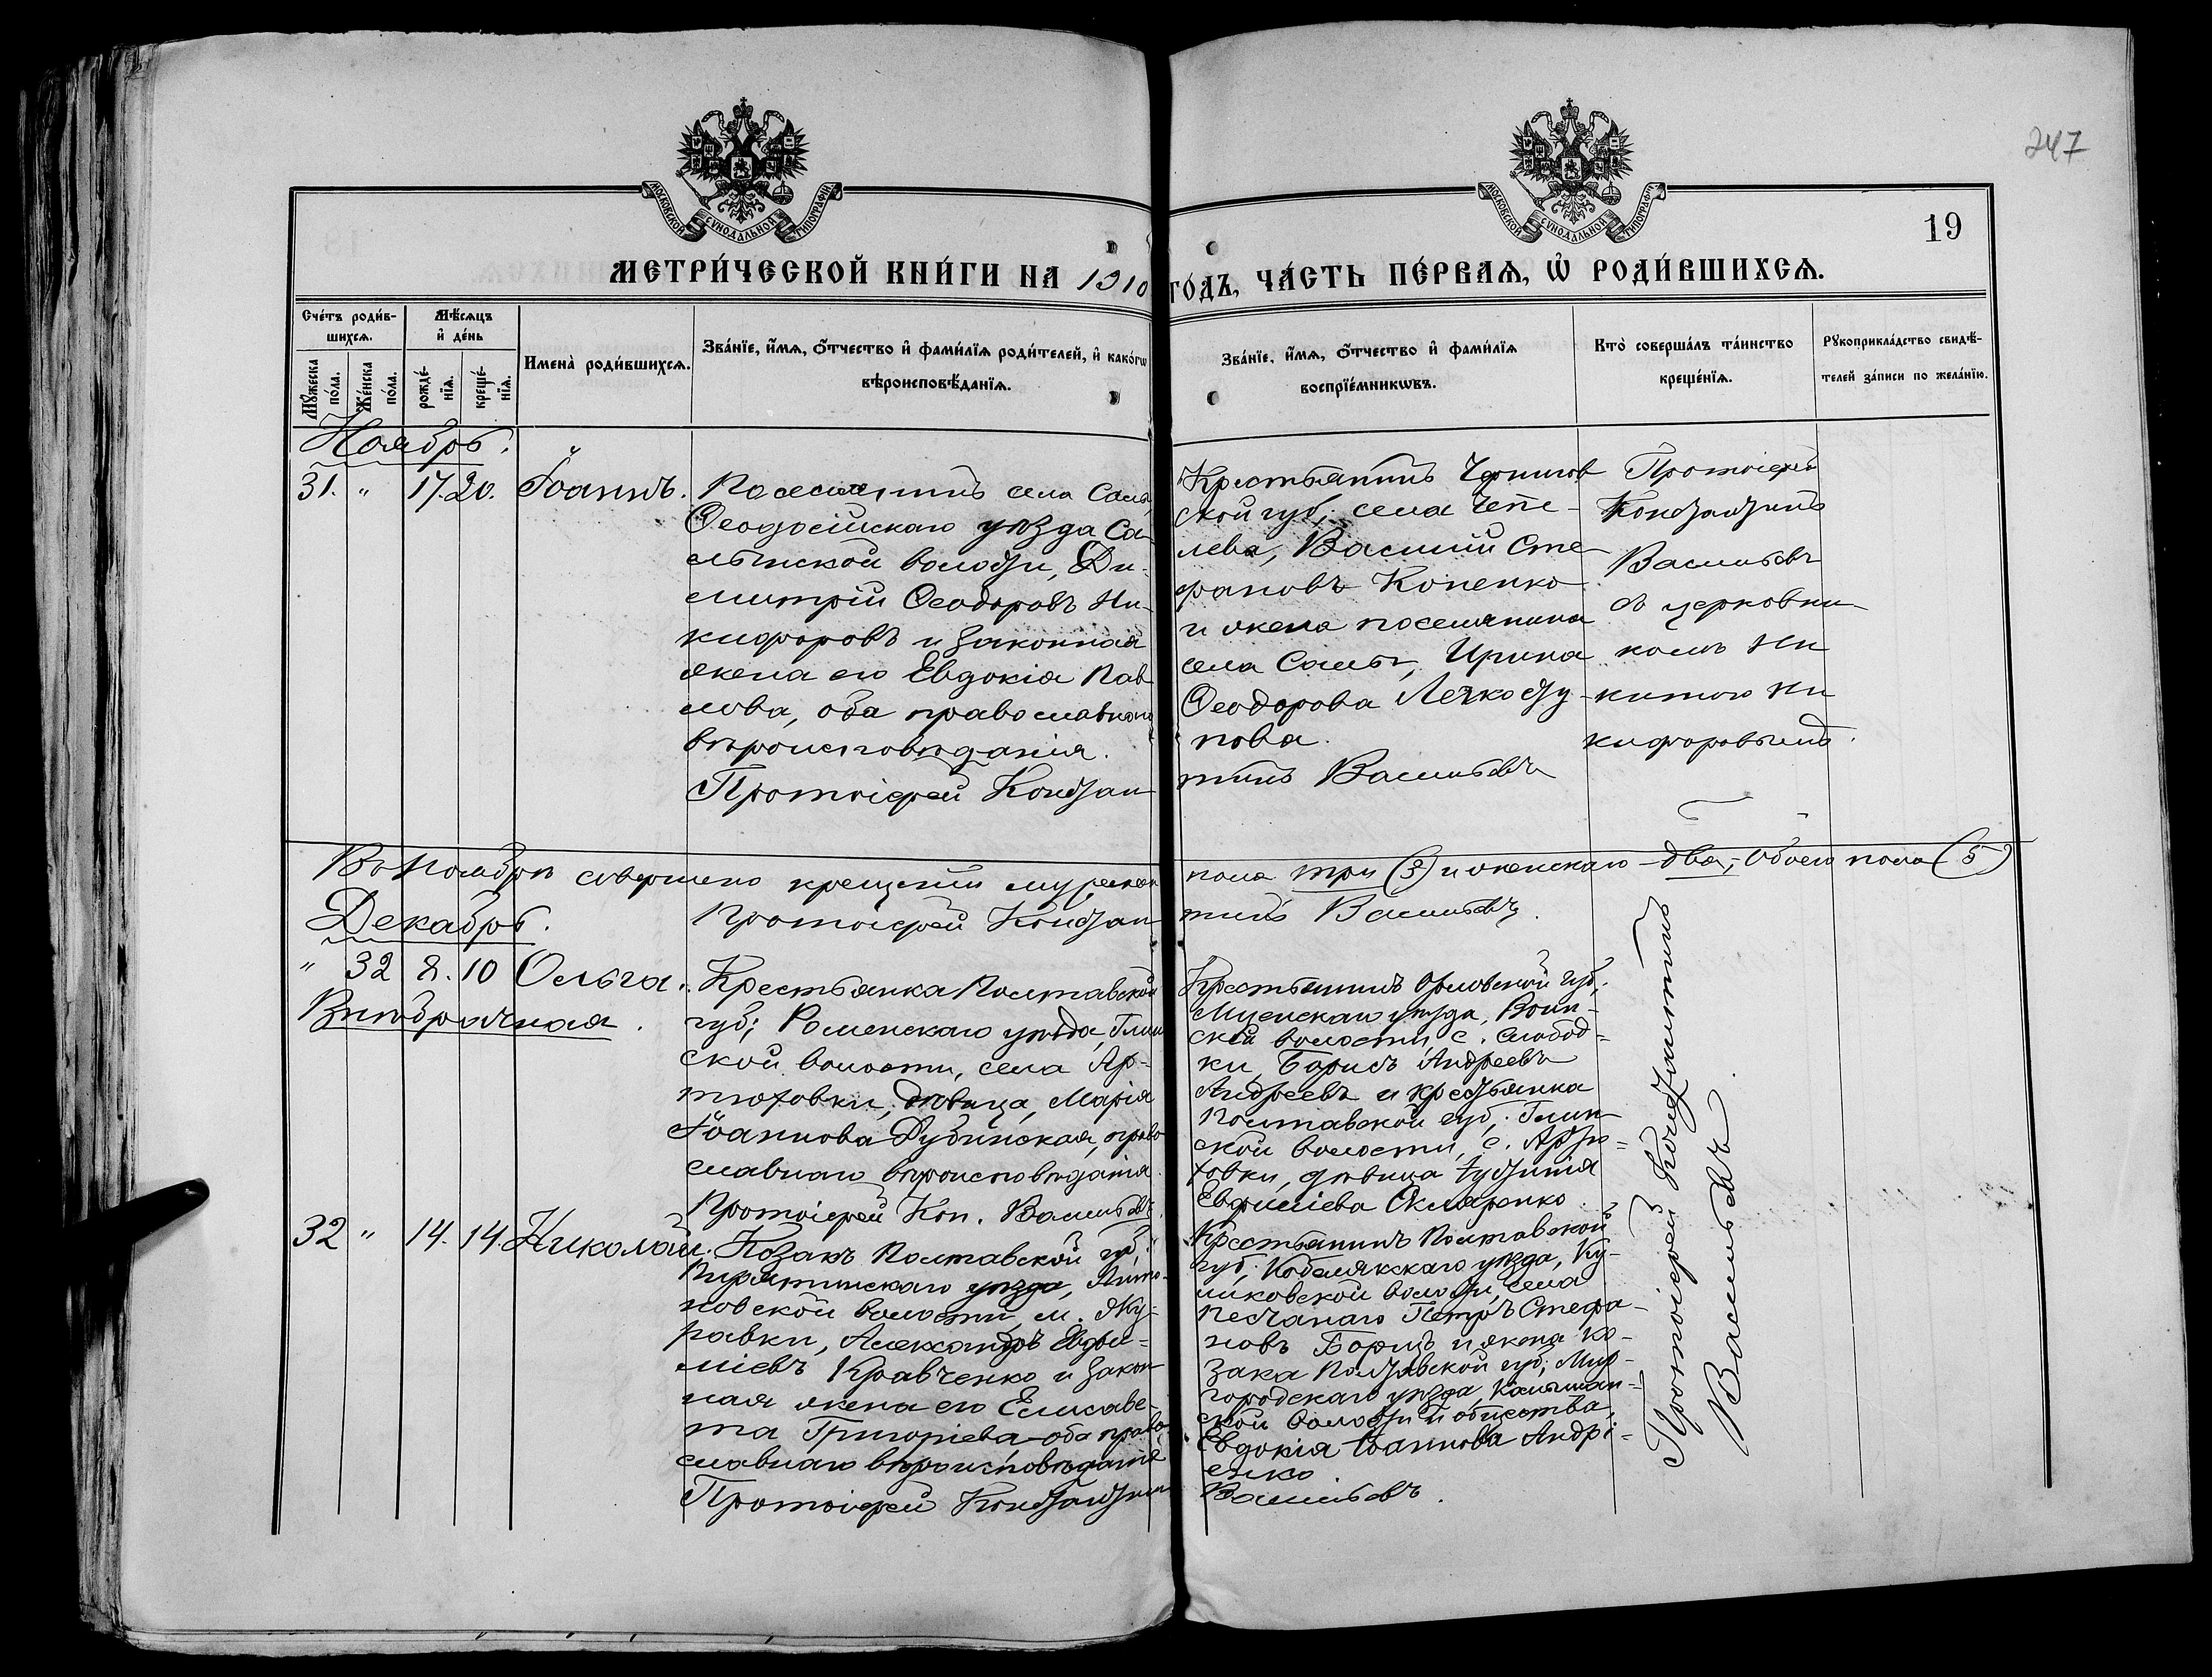 247
МОСКОВСКОЙ СѴНОДАЛЬНОЙ ТИПОГРАФІИ
МОСКОВСКОЙ СѴНОДАЛЬНОЙ ТИПОГРАФІИ
19
МЕТРИ́ЧЕСКОЙ КНИ́ГИ НА 1910 ГО́ДЪ, ЧА́СТЬ ПЕ́РВАѦ, Ѡ РОДИ́ВШИХСѦ.
Сче́тъ роди́в-
шихсѧ.
Мѣ́сѧцъ
и де́нь
Имена̀ роди́вшихсѧ.
Зва́нїе, и́мѧ, о́тчество и фами́лїѧ роди́телей, и како́гѡ
вѣроисповѣ́данїѧ.
Мꙋ́жеска
по́ла.
Же́нска
по́ла.
рожде́-
нїѧ.
креще́-
нїѧ.
Зва́нїе, и́мѧ, о́тчество и фами́лїѧ
воспрїе́мникѡвъ.
Кто̀ соверша́лъ та́инство
креще́нїѧ.
Рꙋкоприкла́дство свидѣ́-
телей за́писи по жела́нїю.
Ноябрь.
31. " 17. 20. Іоаннъ.
Поселянинъ села Салы,
Ѳеодосійскаго уѣзда Са-
лынской волости, Ди-
митрій Ѳеодоровъ Ни-
кифоровъ и законная
жена его Евдокія Пав
лова, оба православнаго
вѣроисповѣданія.
Протоіерей Констан
Крестьянинъ Чернигов
ской губ; села Чепе-
лева, Василій Сте-
фановъ Копенко
и жена поселянина
села Салы, Ирина
Ѳеодорова Легкосту-
пова.
тинъ Васильевъ
Протоіерей
Константинъ
Васильевъ
съ церковни-
комъ Ни
китою Ни
кифоровымъ.
Въ Ноябрѣ совершено крещеній мужеска пола три (3) и женскаго – два, – обоего пола (5)
Протоіерей Константинъ Васильевъ.
Декабрь.
" 32 8. 10 Ольга.
Внѣбрачная.
Крестьянка Полтавской
губ; Роменскаго уѣзда, Глин
ской волости, села Ар-
тюховки, дѣвица, Марія
Іоаннова Дубинская, право
славнаго вѣроисповѣданія.
Протоіерей Кон. Васильевъ.
Крестьянинъ Орловской губ,
Мценскаго уѣзда, Воин-
ской волости, с. Слобод-
ки, Борисъ Андреевъ
Андреевъ и крестьянка
Полтавской губ; Глин
ской волости, с. Артю-
ховки, дѣвица Іустинія
Евфиміева Скляренко
32 " 14. 14. Николай.
Козакъ Полтавской губ:
Пирятинскаго уѣзда,
новской волости, м. Жу-
равки, Александръ Евфи-
міевъ Кравченко и закон
ная жена его Елисаве-
та Григоріева – оба право-
славнаго вѣроисповѣданія
Протоіерей Константин
Крестьянинъ Полтавской
губ; Кобелякскаго уѣзда, Ку-
ликовской волости, села
Песчанаго Петръ Стефа-
новъ Борщъ и жена ко-
зака Полтавской губ; Мир-
городскаго уѣзда,
ской волости и общества,
Евдокія Іоаннова Андрі-
енко
Васильевъ.
Протоіерей Константинъ
Васильевъ.